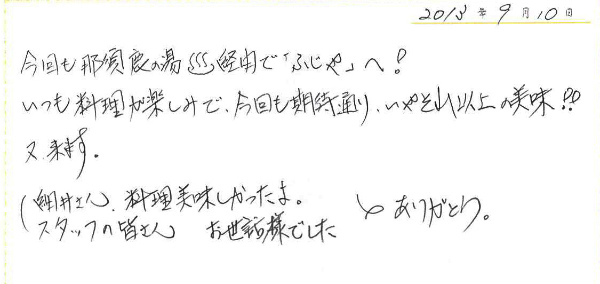 2013年9月10日
今回も那須鹿の湯♨経由で「ふじや」へ!
いつも料理が楽しみで、今回も期待通り、いやそれ以上の美味!!
又、来ます。
(細井さん、料理美味しかったよ。
スタッフの皆さん お世話様でした ありがとう。